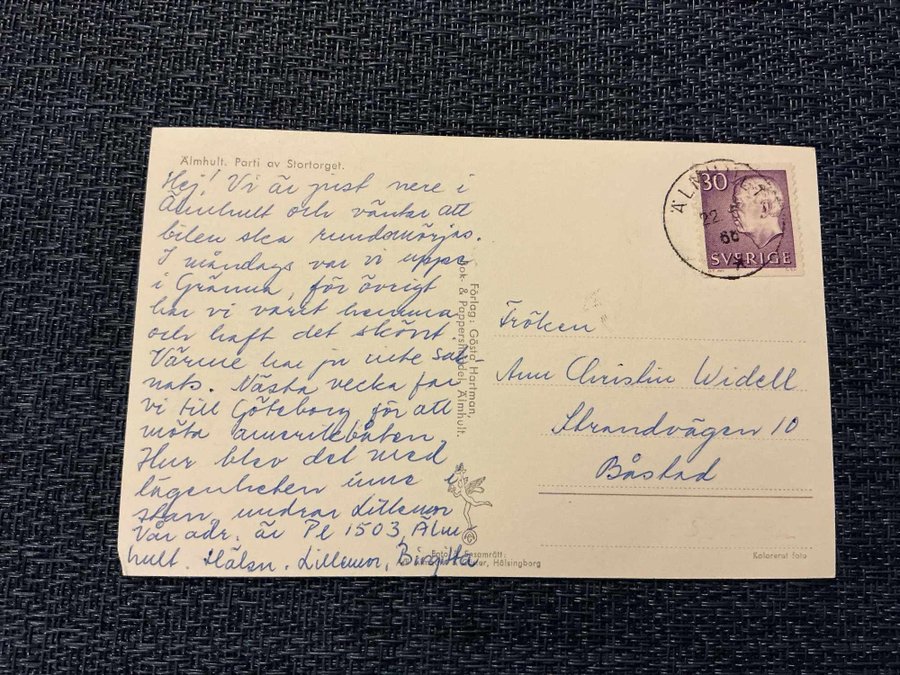 Älmhult. Parti av Stortorget.
Hej! Vi är just nere i
Älmhult och väntar att
bilen ska rundsmörjas.
I måndags var vi uppe
i Gränna, för övrigt
har vi varit hemma
och haft det skönt.
Värme har ju inte sak-
nats. Nästa vecka far
vi till Göteborg för att
möta amerikabåten.
Hur blev det med
lägenheten inne i
stan, undrar Lillemor
Vår adr. är Pl 1503, Älm
hult. Hälsn. Lillemor, Birgitta
Förlag: Gösta Hartman,
Bok & Pappershandel, Älmhult.
Ensamrätt:
Hälsingborg
30
SVERIGE
ÄLMHULT
22
66
Fröken
Ann Christin Widell
Strandvägen 10
Båstad
Kolorerat foto